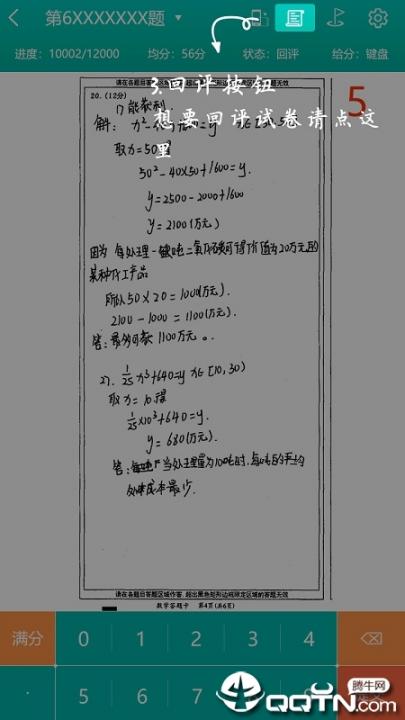 第6XXXXXXX题
进度：10002/12000 均分：56分 状态：回评 给分：键盘
请在各题目答题区域内作答，超出黑色矩形边框限定区域的答案无效
3.回评按钮
想要回评试卷请点这
里
5
20.(12分)
1) 能获利.
解：
取x=50得
50²-40×50+1600=y.
y=2500-2000+1600
y=2100(万元)
因为 每处理一吨二氧化碳可得价值为20万元的
某种化工产品
所以 50×20=1000(万元).
2100-1000=1100(万元).
答：最多可获 1100万元。
1/25 x³+640=y x∈[10,30)
取x=10得
1/25×10³+640=y.
y=680(万元).
答：当处理量为10吨时，每吨的平均
处理成本最少.
请在各题目答题区域内作答，超出黑色矩形边框限定区域的答案无效
数学答题卡 第4页(共6页)
满分 0 1 2 3 4
. 5 6 7
腾牛网
QQTN.com